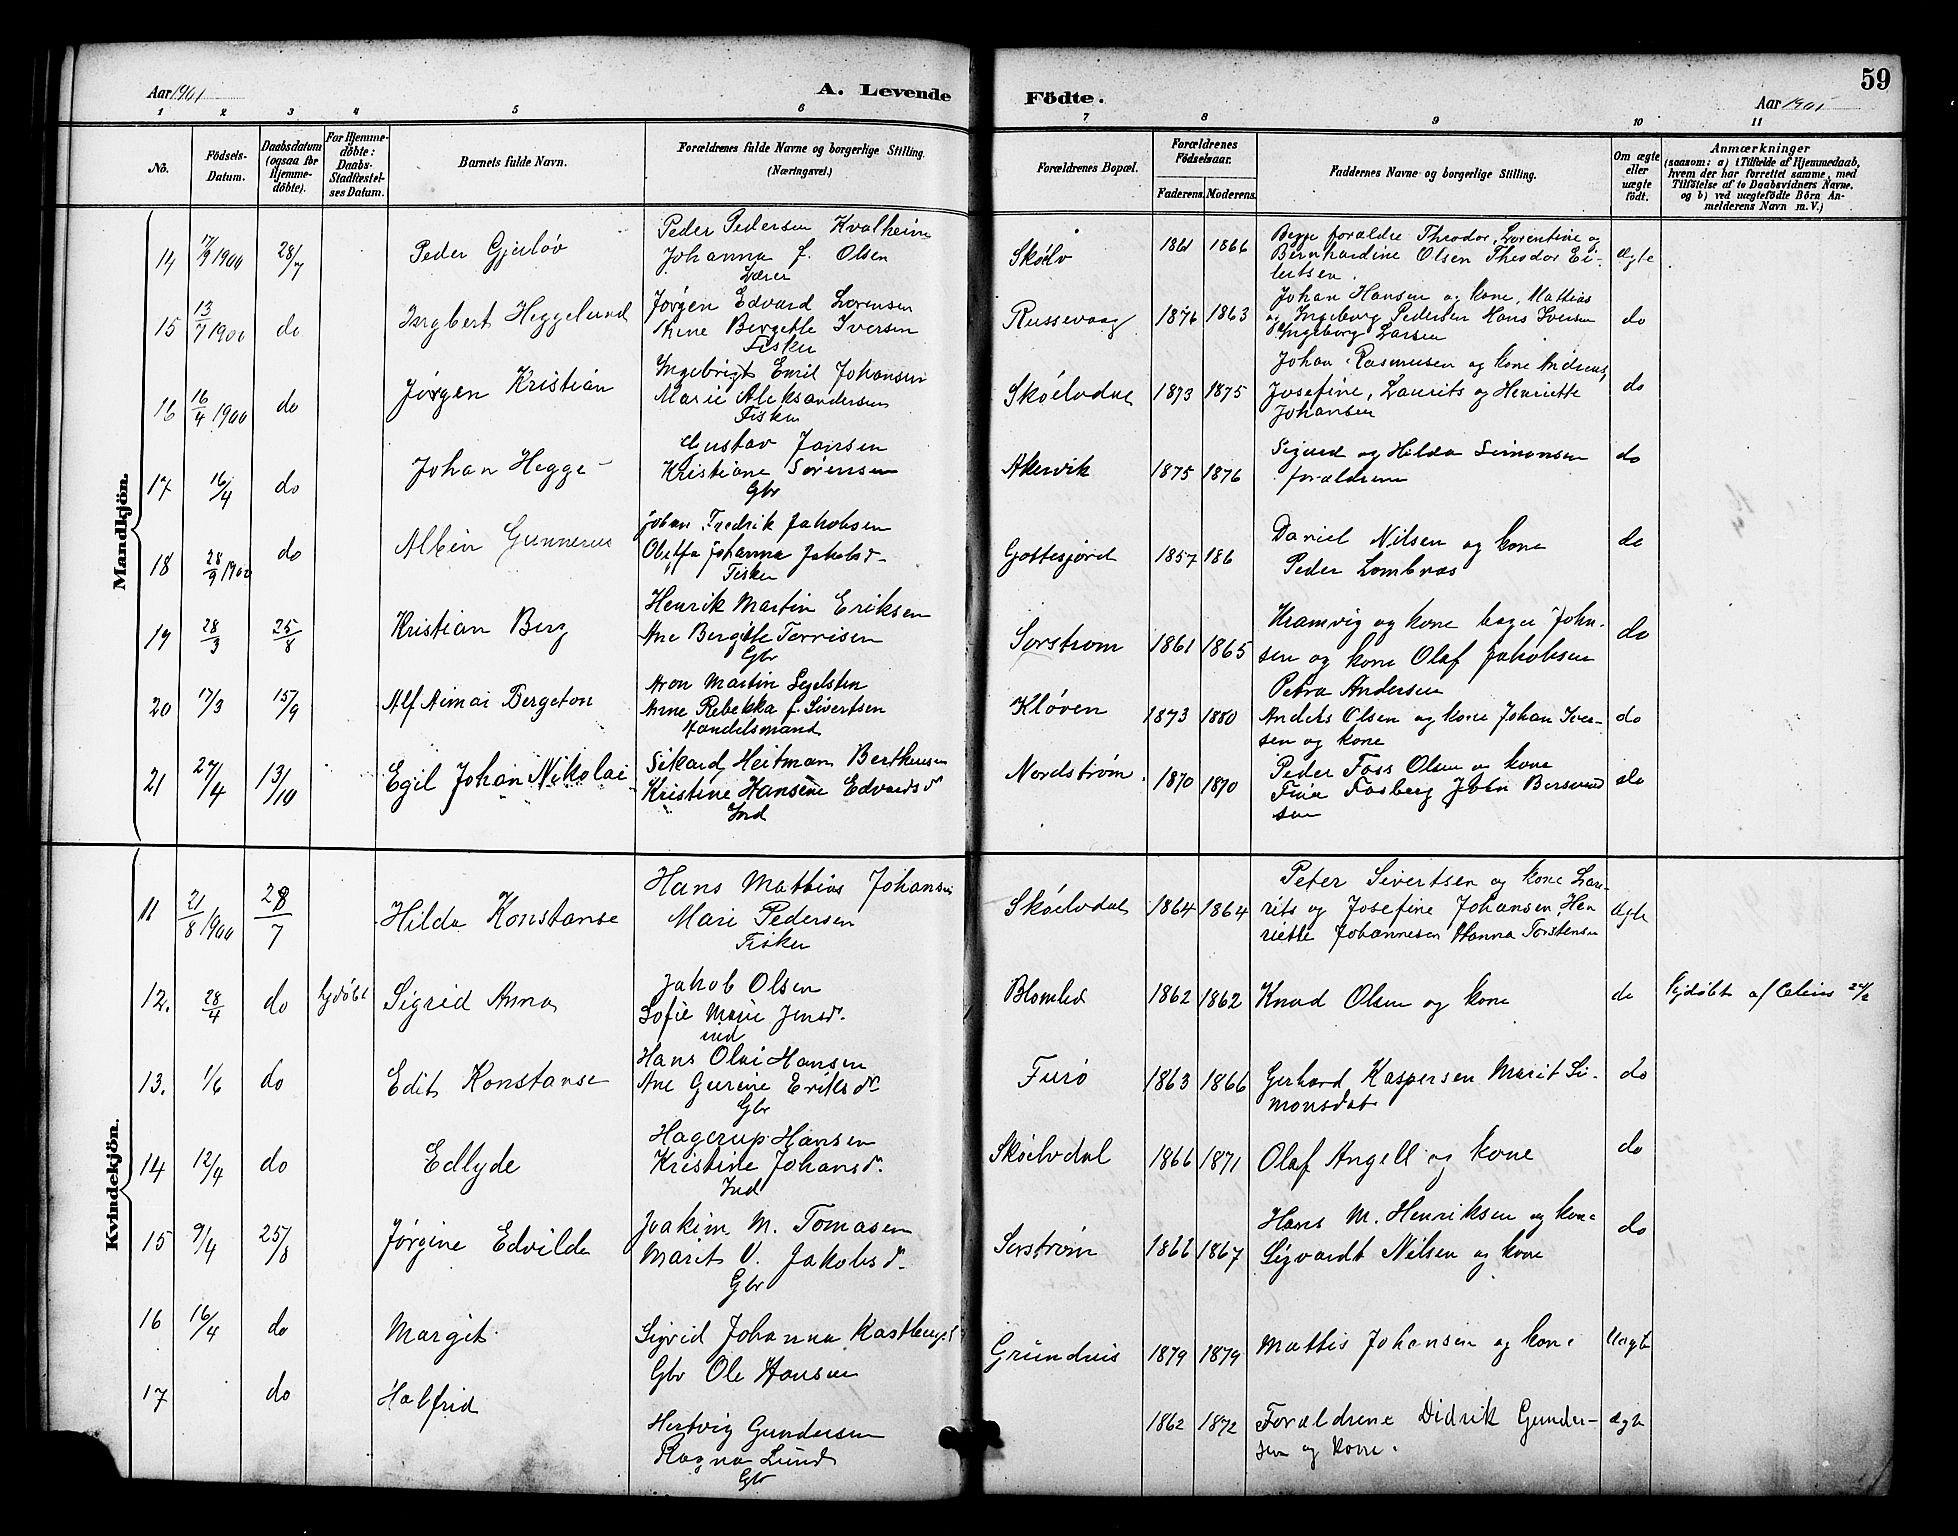 Aar 1901
A. Levende
Födte.
Aar 1901
59
1 2 3 4 5 6 7 8 9 10 11
No.
Födsels-
Datum.
Daabsdatum
(ogsaa for
Hjemme-
döbte).
For Hjemme-
döbte:
Daabs-
Stadfæstel-
ses Datum.
Barnets fulde Navn.
Forældrenes fulde Navne og borgerlige Stilling.
(Næringsvei.)
Forældrenes Bopæl.
Forældrenes
Födselsaar.
Faderens. Moderens.
Faddernes Navne og borgerlige Stilling.
Om ægte
eller
uægte
födt.
Anmærkninger
(saasom: a) i Tilfælde af Hjemmedaab,
hvem der har forrettet samme, med
Tilföielse af to Daabsvidners Navne,
og b) ved uægtefödte Börn An-
melderens Navn m. V.)
Mandkjön.
14 17/9 1900 28/7 Peder Gjerløv
Peder Pedersen Kvalheim
Johanna f. Olsen
Lærer
Skøelv 1861 1866
Begge forældre Theodor, Lorentine og
Bernhardine Olsen Theodor Ei-
lertsen.
Ægte
15 13/7 1900 do Ingbert Heggelund
Jørgen Edvard Lorensen
Anne Bergette Iversen
Fisker
Russevaag 1876 1863
Johan Hansen og kone, Mattias
og Ingeborg Pedersen Hans Iversen
Ingeborg Larsen
do
16 16/4 1900 do Jørgen Kristian
Ingebrigt Emil Johansen
Marie Aleksandersen
Fisker
Skøelvdal 1873 1875
Johan Rasmusen og kone Andreas,
Josefine, Laurits og Henriette
Johansen
do
17 16/4 do Johan Hegge
Gustav Jansen
Kristiane Sørensen
Gbr
Akervik 1875 1876
Sigurd og Hilda Simonsen
forældrene
do
18 28/9 1900 do Albin Gunnerius
Johan Fredrik Jakobsen
Johanna Jakobsd.
Fisker
Gottesjord 1857 186
Daniel Nilsen og kone
Peder Lombnæs
do
19 28/3 25/8 Kristian Berg
Henrik Martin Eriksen
Ane Bergitte Torrisen
Gbr
Sørstrøm 1861 1865
Kramvig og kone bager John-
sen og kone Olaf Jakobsen
Petra Andersen
do
20 17/3 15/9 Alf Aimar Bergeton
Aron Martin Segelsten
Anne Rebekka f. Sivertsen
Handelsmand
Kløven 1873 1880
Anders Olsen og kone Johan Iver-
sen og kone
do
21 27/4 13/10 Egil Johan Nikolai
Sikard Heitman Bertheusen
Kristine Hansine Edvardsd
Ind
Nordstrøm 1870 1870
Peder Foss Olsen og kone
Fosberg
sen
do
Kvindekjön.
11 21/8 1900 28/7 Hilda Konstanse
Hans Mathias Johansen
Mari Pedersen
Fisker
Skøelvdal 1864 1864
Peter Sivertsen og kone Lau-
rits og Josefine Johansen, Hen
riette Johannesen Hanna Torstensen
Ægte
12. 28/4 do hjdøbt Sigrid Anna
Jakob Olsen
Sofie Marie Jensd.
ind
Blomlid 1862 1862
Knud Olsen og kone
do
Hjdøbt af
13. 1/6 do Edit Konstanse
Hans Olai Hansen
Ane Gurine Eriksdr
Gbr
Furø 1863 1866
Gerhard Kaspersen Marit Si-
monsdat
do
14 12/4 do Edlyde
Hagerup Hansen
Kristine Johansdr.
Ind
Skøelvdal 1866 1871
Olaf Angell og kone
do
15 9/4 25/8 Jørgine Edvilde
Joakim M. Tomasen
Marit V. Jakobsd.
Gbr
Sørstrøm 1866 1867
Hans M. Henriksen og kone
Sigvardt Nilsen og kone
do
16 16/4 do Margit
Sigrid Johanna
Gbr Ole Hansen
Grundnes 1879 1879
Mattis Johansen og kone
Uægte
17 do Halfrid
Hertvig Gundersen
Ragna Lund
Gbr
1862 1872
Forældrene Didrik Gunder-
sen og kone.
ægte